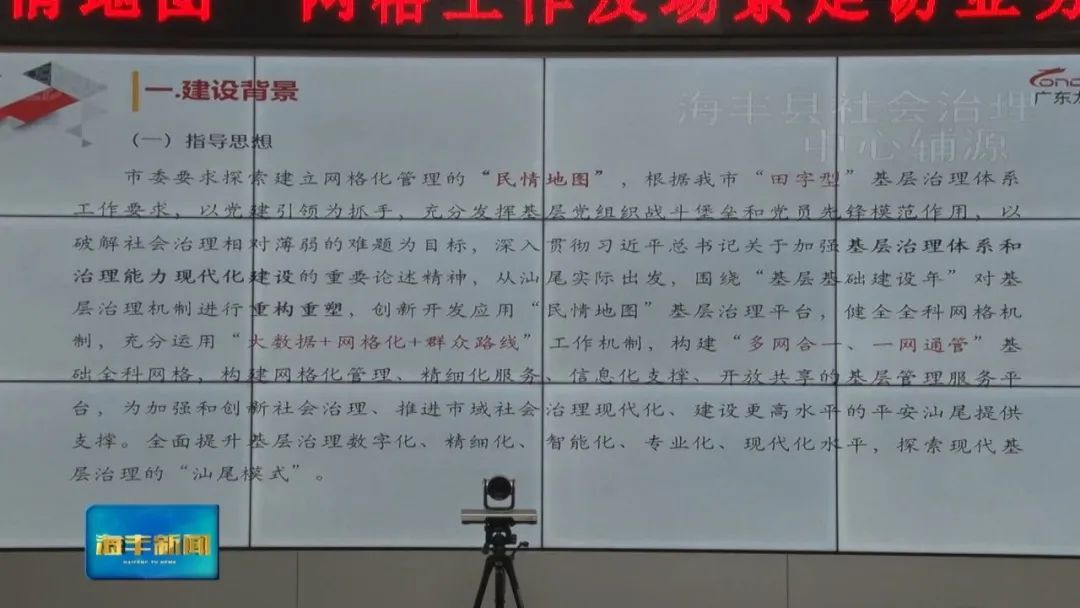 情地图 网格工作及场景走访业务
一.建设背景
广东
海丰县社会治理
中心辅源
（一）指导思想
市委要求探索建立网格化管理的“民情地图”，根据我市“田字型”基层治理体系
工作要求，以党建引领为抓手，充分发挥基层党组织战斗堡垒和党员先锋模范作用，以
破解社会治理相对薄弱的难题为目标，深入贯彻习近平总书记关于加强基层治理体系和
治理能力现代化建设的重要论述精神，从汕尾实际出发，围绕“基层基础建设年”对基
层治理机制进行重构重塑，创新开发应用“民情地图”基层治理平台，健全全科网格机
制，充分运用“大数据+网格化+群众路线”工作机制，构建“多网合一、一网通管”基
础全科网格，构建网格化管理、精细化服务、信息化支撑、开放共享的基层管理服务平
台，为加强和创新社会治理、推进市域社会治理现代化、建设更高水平的平安汕尾提供
支撑。全面提升基层治理数字化、精细化、智能化、专业化、现代化水平，探索现代基
层治理的“汕尾模式”。
海丰新闻
HAIFENG TV NEWS